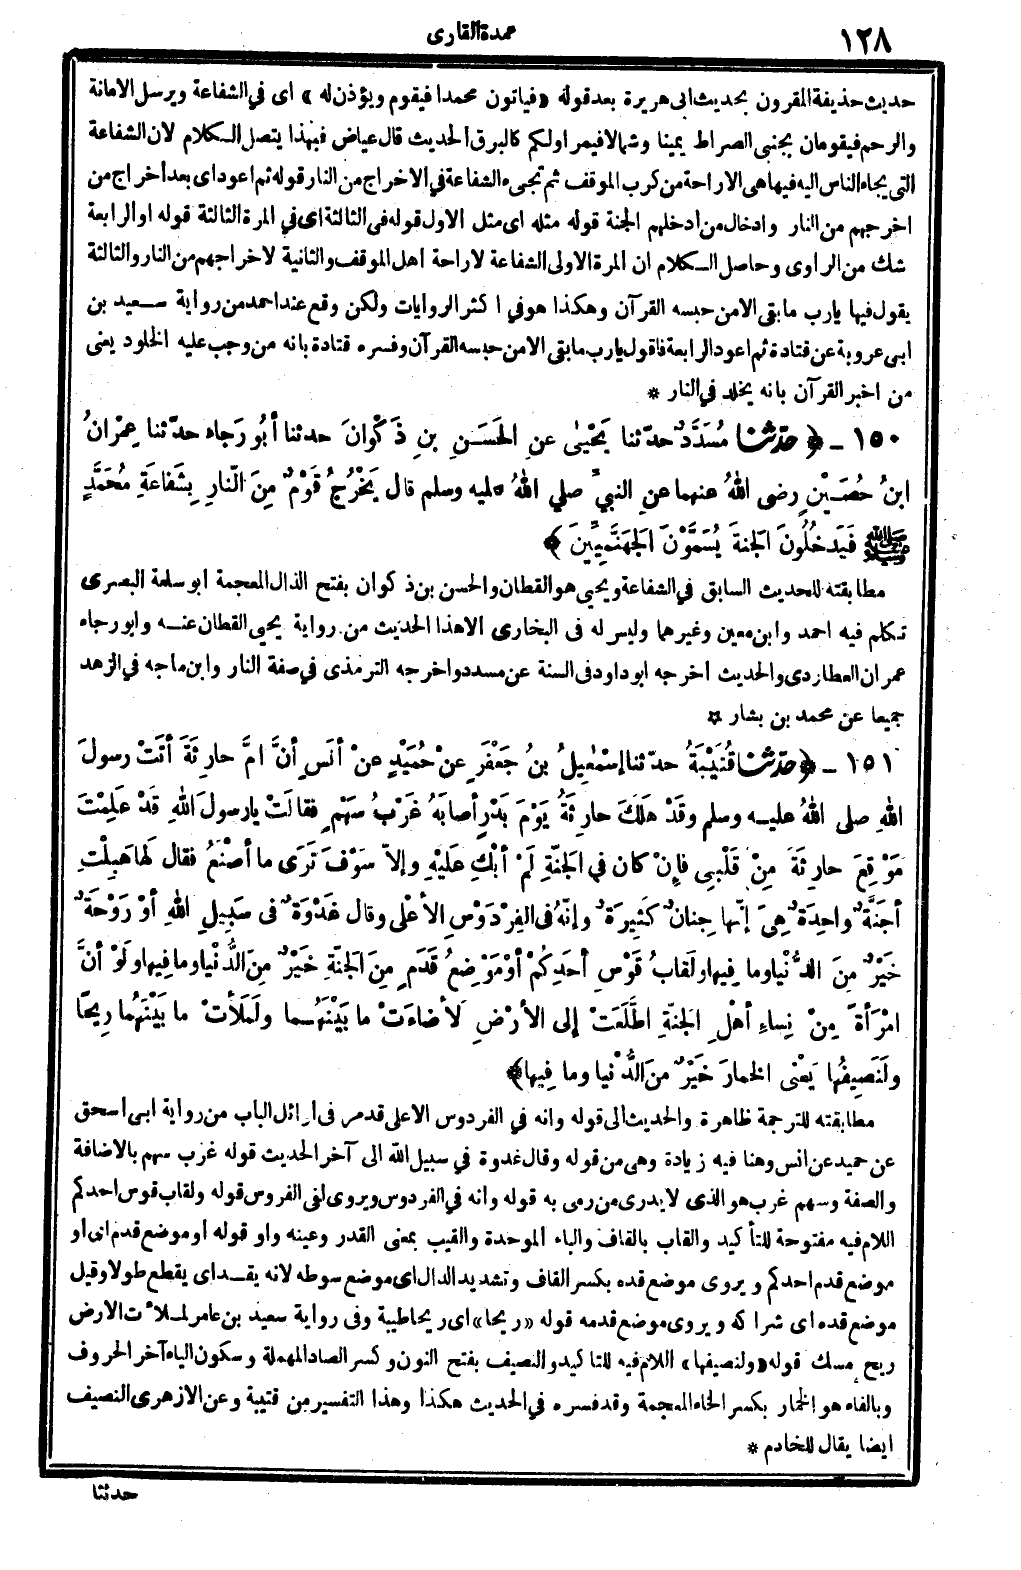 ١٢٨
عمدة القارى
حديث حذيفة المقرون بحديث ابى هريرة بعد قوله «فياتون محمدا فيقوم ويؤذن له» اى في الشفاعة ويرسل الامانة
والرحم فيقومان بجنبى الصراط يمينا وشمالا فيمر اولكم كالبرق الحديث قال عياض فبهذا يتصل الكلام لان الشفاعة
التى يجاء الناس اليه فيها هى الاراحة من كرب الموقف ثم تجىء الشفاعة في الاخراج من النار قوله ثم اعود اى بعد أخراج من
اخرجهم من النار وادخال من أدخلهم الجنة قوله مثله اى مثل الاول قوله في الثالثة اى في المرة الثالثة قوله او الرابعة
شك من الراوى وحاصل الكلام ان المرة الاولى الشفاعة لاراحة اهل الموقف والثانية لاخراجهم من النار والثالثة
يقول فيها يارب ما بقى الا من حبسه القرآن وهكذا هو في اكثر الروايات ولكن وقع عند احمد من رواية سعيد بن
ابى عروبة عن قتادة ثم اعود الرابعة فاقول يارب ما بقى الا من حبسه القرآن وفسره قتادة بانه من وجب عليه الخلود يعنى
من اخبر القرآن بانه يخلد في النار *
١٥٠ ـ ﴿ حدّثنا مُسَدَّدٌ حدّثنا يَحْيٰى عنِ الحَسَنِ بنِ ذَكْوانَ حدثنا أبُو رَجاء حدّثنا عِمْرَانُ
ابنُ حُصَيْنٍ رضى اللهُ عنهما عنِ النبيِّ صلي اللهُ عليه وسلم قال يَخْرُجُ قَوْمٌ مِنَ النّارِ بِشَفاعَةِ مُحَمَّدٍ
ﷺ فَيَدخُلُونَ الجنةَ يُسَمَّوْنَ الجَهَنَّمِيِّينَ ﴾
مطابقته للحديث السابق في الشفاعة ويحيى هو القطان والحسن بن ذكوان بفتح الذال المعجمة ابو سلمة البصرى
تكلم فيه احمد وابن معين وغيرهما وليس له فى البخارى الا هذا الحديث من رواية يحيى القطان عنه وابو رجاء
عمران العطاردى والحديث اخرجه ابو داود فى السنة عن مسدد واخرجه الترمذى في صفة النار وابن ماجه في الزهد
جميعا عن محمد بن بشار *
١٥١ ـ ﴿ حدّثنا قُتَيْبَةُ حدّثنا إسْمٰعِيلُ بنُ جَعْفَرٍ عنْ حُمَيْدٍ عنْ أنَسٍ أنَّ امَّ حارِثَةَ أتَتْ رسولَ
اللهِ صلى اللهُ عليه وسلم وقَدْ هَلَكَ حارِثَةُ يَوْمَ بَدْرٍ أصابَهُ غَرْبُ سَهْمٍ فقالَتْ يا رسولَ اللهِ قَدْ عَلِمْتَ
مَوْقِعَ حارِثَةَ مِنْ قَلْبِى فإِنْ كان في الجَنّةِ لَمْ أبْكِ عَلَيْهِ وإلاّ سَوْفَ تَرَى ما أصْنَعُ فقال لَها هَبِلْتِ
أجَنَّةٌ واحِدَةٌ هِيَ إنّها جِنانٌ كَثِيرَةٌ وإنّهُ فى الفِرْدَوْسِ الأعْلى وقال غَدْوَةٌ فى سَبِيلِ اللهِ أوْ رَوْحَةٌ
خَيْرٌ مِنَ الدُّنْيا وما فِيها ولَقابُ قَوْسِ أحَدِكُمْ أوْ مَوْضِعُ قَدَمٍ مِنَ الجَنةِ خَيْرٌ مِنَ الدُّنْيا وما فِيها ولَوْ أنَّ
امْرَأةً مِنْ نِساءِ أهْلِ الجَنةِ اطَّلَعَتْ إلى الأرْضِ لَأضاءَتْ ما بَيْنَهُما ولَمَلَأتْ ما بَيْنَهُما رِيحًا
ولَنَصِيفُها يَعْنى الخمارَ خَيْرٌ مِنَ الدُّنْيا وما فِيها﴾
مطابقته للترجمة ظاهرة والحديث الى قوله وانه في الفردوس الاعلى قد مر فى اوائل الباب من رواية ابى اسحق
عن حميد عن انس وهنا فيه زيادة وهى من قوله وقال غدوة في سبيل الله الى آخر الحديث قوله غرب سهم بالاضافة
والصفة وسهم غرب هو الذى لا يدرى من رمى به قوله وانه في الفردوس ويروى لفى الفروس قوله ولقاب قوس احدكم
اللام فيه مفتوحة للتأكيد والقاب بالقاف والباء الموحدة والقيب بمعنى القدر وعينه واو قوله أو موضع قدم اى أو
موضع قدم احدكم ويروى موضع قده بكسر القاف وتشديد الدال اى موضع سوطه لانه يقد اى يقطع طولا وقيل
موضع قده اى شراكه ويروى موضع قدمه قوله «ريحا» اى ريحا طيبة وفى رواية سعيد بن عامر لملأت الارض
ريح مسك قوله «ولنصيفها» اللام فيه للتاكيد والنصيف بفتح النون وكسر الصاد المهملة وسكون الياء آخر الحروف
وبالفاء هو الخمار بكسر الخاء المعجمة وقد فسره في الحديث هكذا وهذا التفسير من قتيبة وعن الازهرى النصيف
ايضا يقال للخادم *
حدثنا